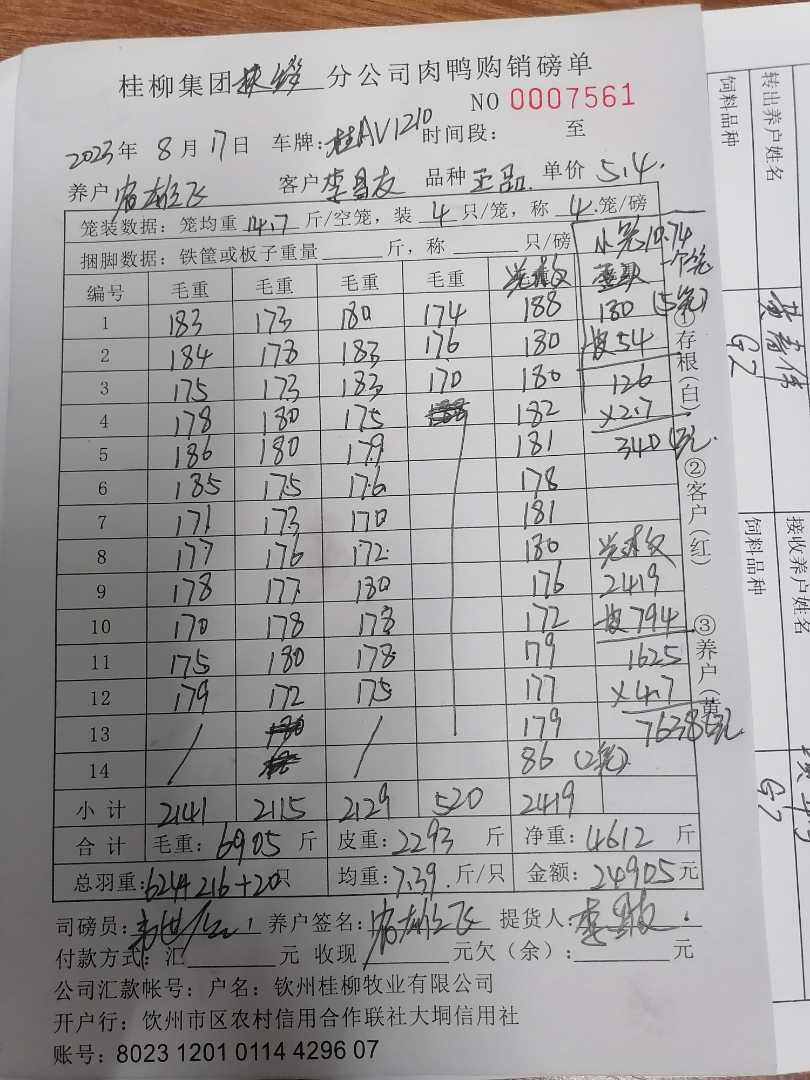 桂柳集团 分公司肉鸭购销磅单
NO 0007561
2023年 8月 17日 车牌:桂AV1210 时间段: 至
养户 客户李昌友 品种 正品. 单价 5.4.
笼装数据:笼均重 14.7 斤/空笼,装 4 只/笼,称 4.笼/磅
捆脚数据:铁筐或板子重量 斤,称 只/磅
小笼10.74
一个笼
编号 毛重 毛重 毛重 毛重
1 183 173 180 174 188 180 (5笼)
2 184 178 183 176 180 54
3 175 173 183 170 180 126
4 178 180 175 182 ×2.7
5 186 180 179 181 340元.
6 185 175 176 178
7 171 173 170 181
8 177 176 172 180
9 178 177 180 176 2419
10 170 178 178 172 794
11 175 180 178 179 1625
12 179 172 175 177 ×4.7
13 / / 179 7638元
14 86 (2笼)
小计 2141 2115 2129 520 2419
合计 毛重:6905 斤 皮重:2293 斤 净重:4612 斤
总羽重:624+216+20只 均重:7.39.斤/只 金额:24905元
司磅员: 养户签名: 提货人:
付款方式:汇 元 收现 元欠(余): 元
公司汇款帐号:户名:钦州桂柳牧业有限公司
开户行:钦州市区农村信用合作联社大垌信用社
账号:8023 1201 0114 4296 07
①存根(白)
②客户(红)
③养户(黄
转出养户姓名
饲料品种
G2
接收养户姓名
饲料品种
G7